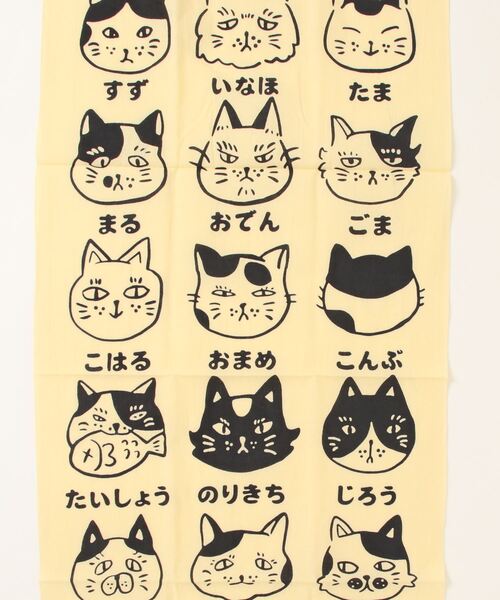 すず いなほ たま
まる おでん ごま
こはる おまめ こんぶ
たいしょう のりきち じろう